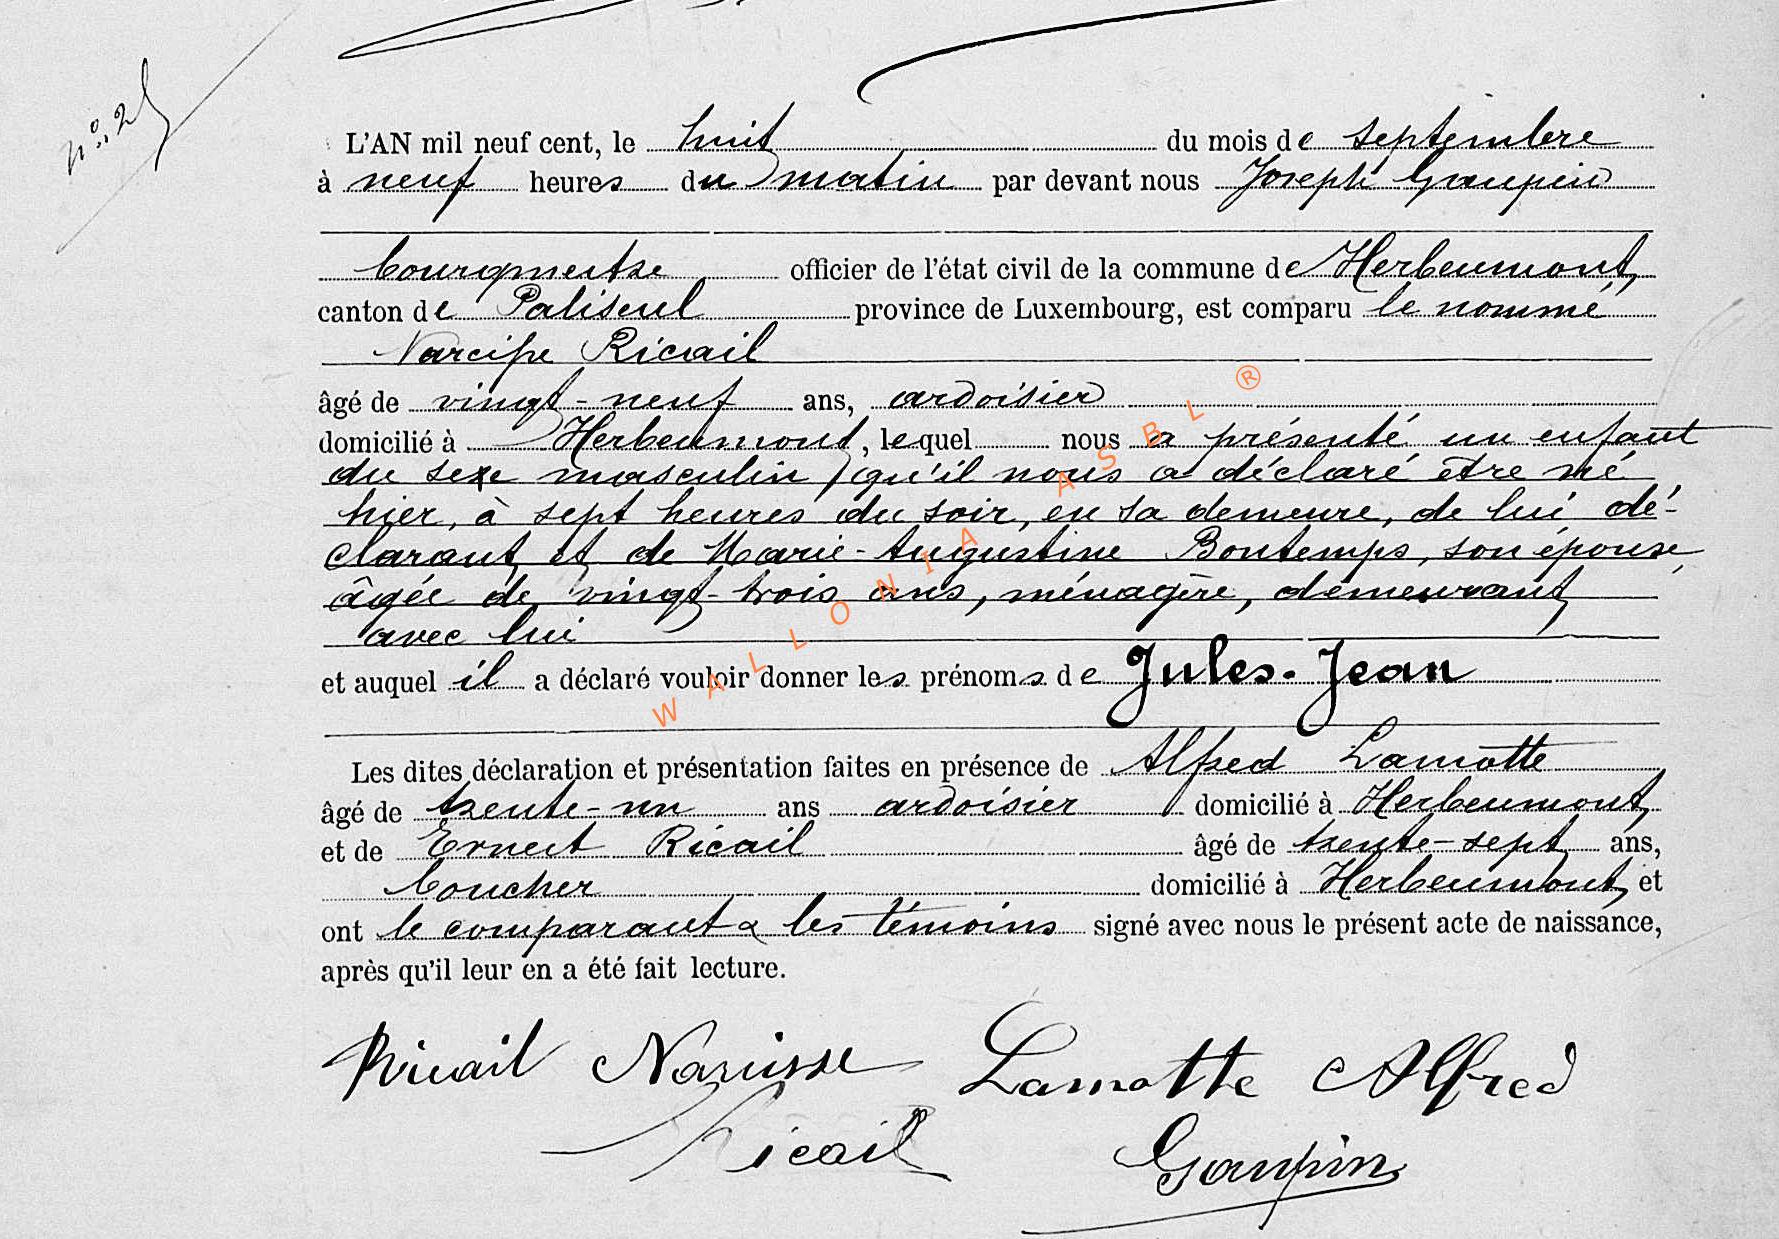 N° 25
L'AN mil neuf cent, le huit du mois de septembre
à neuf heures du matin par devant nous Joseph Goupin
Bourgmestre officier de l'état civil de la commune de Herbeumont,
canton de Paliseul province de Luxembourg, est comparu le nommé
Narcisse Ricail
âgé de vingt-neuf ans, ardoisier
domicilié à Herbeumont, lequel nous a présenté un enfant
du sexe masculin, qu'il nous a déclaré être né
hier, à sept heures du soir, en sa demeure, de lui dé-
clarant et de Marie-Augustine Bontemps, son épouse,
âgée de vingt-trois ans, ménagère, demeurant
avec lui
et auquel il a déclaré vouloir donner les prénoms de Jules-Jean
Les dites déclaration et présentation faites en présence de Alfred Lamotte
âgé de trente-un ans ardoisier domicilié à Herbeumont,
et de Ernest Ricail âgé de trente-sept ans,
boucher domicilié à Herbeumont, et
ont le comparant & les témoins signé avec nous le présent acte de naissance,
après qu'il leur en a été fait lecture.
Ricail Narcisse Lamotte Alfred
Ricail Goupin
WALLONIA ASBL ®